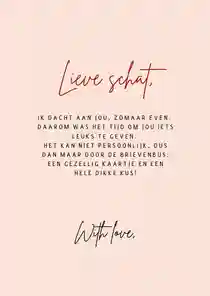 Lieve schat,
IK DACHT AAN JOU, ZOMAAR EVEN.
DAAROM WAS HET TIJD OM JOU IETS
LEUKS TE GEVEN.
HET KAN NIET PERSOONLIJK, DUS
DAN MAAR DOOR DE BRIEVENBUS:
EEN GEZELLIG KAARTJE EN EEN
HELE DIKKE KUS!
With love,